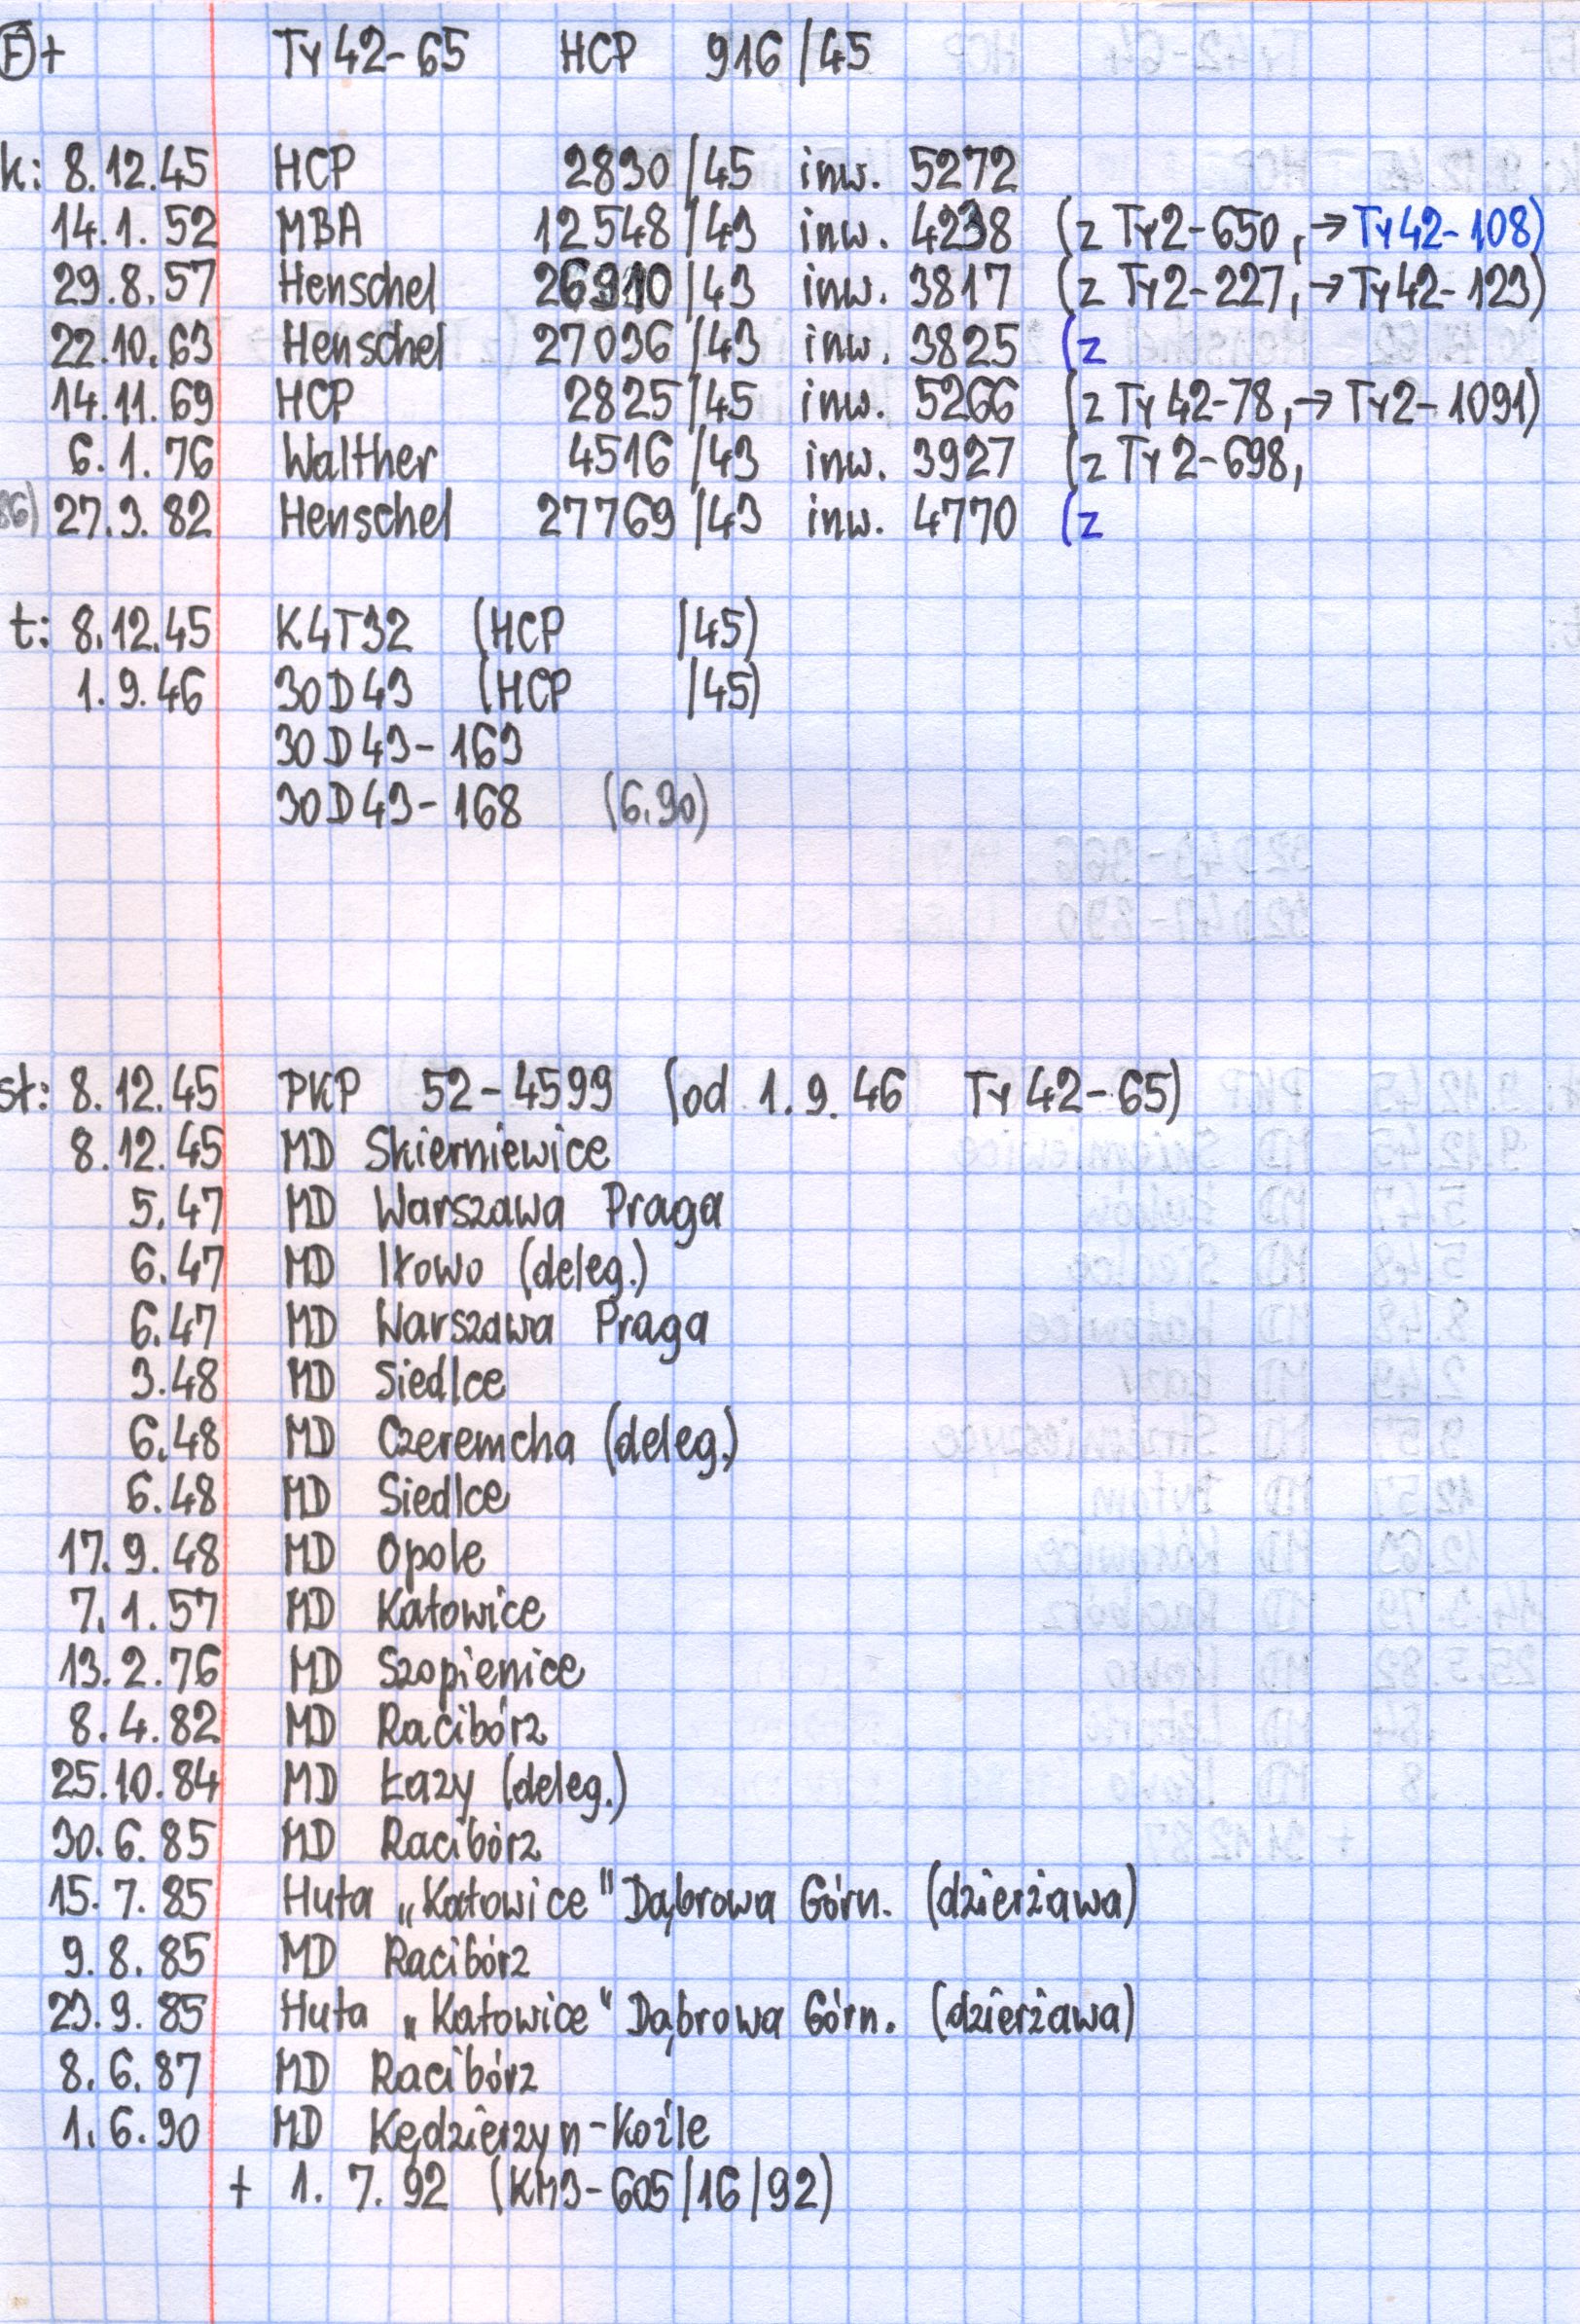 Ⓕ+ Ty42-65 HCP 916/45
k: 8.12.45 HCP 2830/45 inw. 5272
14.1.52 MBA 12548/43 inw. 4238 (z Ty2-650, → Ty42-108)
29.8.57 Henschel 26910/43 inw. 3817 (z Ty2-227, → Ty42-123)
22.10.63 Henschel 27036/43 inw. 3825 (z
14.11.69 HCP 2825/45 inw. 5266 (z Ty42-78, → Ty2-1091)
6.1.76 Walther 4516/43 inw. 3927 (z Ty2-698,
86) 27.3.82 Henschel 27769/43 inw. 4770 (z
t: 8.12.45 K4T32 (HCP /45)
1.9.46 30D43 (HCP /45)
30D43-163
30D43-168 (6.90)
st: 8.12.45 PKP 52-4599 (od 1.9.46 Ty42-65)
8.12.45 MD Skierniewice
5.47 MD Warszawa Praga
6.47 MD Iłowo (deleg.)
6.47 MD Warszawa Praga
3.48 MD Siedlce
6.48 MD Czeremcha (deleg.)
6.48 MD Siedlce
17.9.48 MD Opole
7.1.57 MD Katowice
13.2.76 MD Szopienice
8.4.82 MD Racibórz
25.10.84 MD Łazy (deleg.)
30.6.85 MD Racibórz
15.7.85 Huta „Katowice" Dąbrowa Górn. (dzierżawa)
9.8.85 MD Racibórz
23.9.85 Huta „Katowice" Dąbrowa Górn. (dzierżawa)
8.6.87 MD Racibórz
1.6.90 MD Kędzierzyn-Koźle
+ 1.7.92 (KM3-605/16/92)